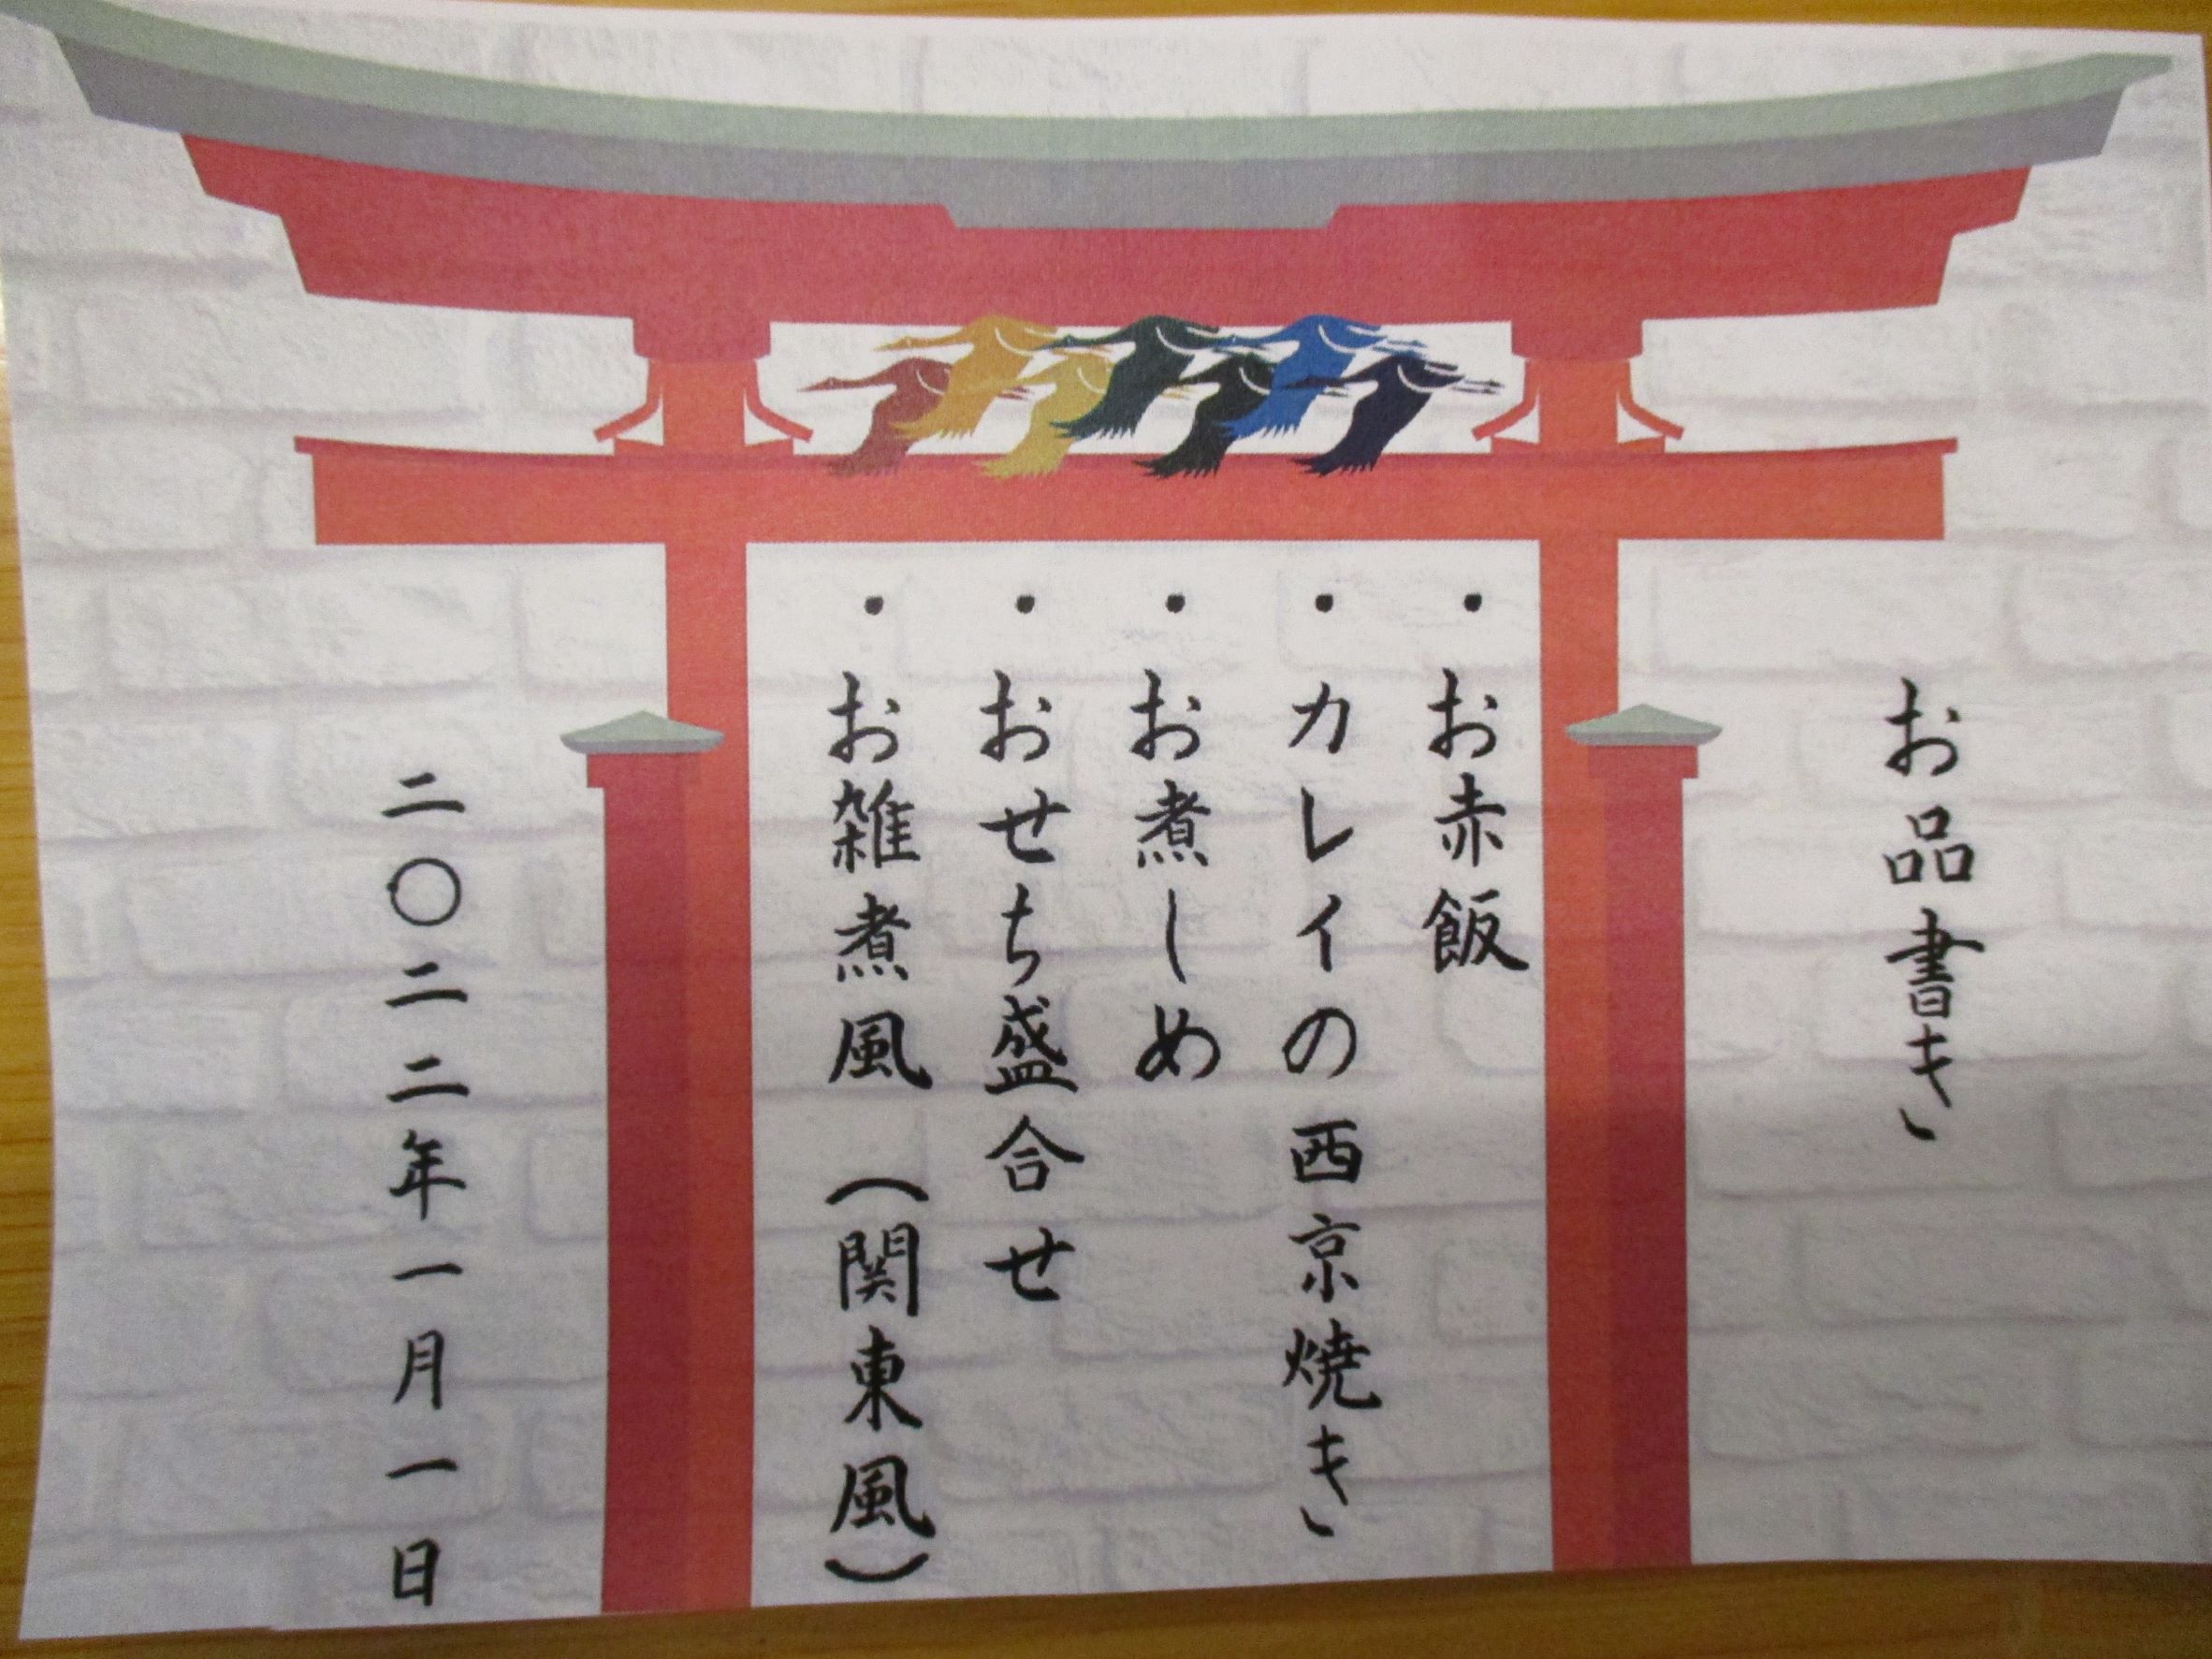 お品書き
・お赤飯
・カレイの西京焼き
・お煮しめ
・おせち盛合せ
・お雑煮風（関東風）
二〇二二年一月一日